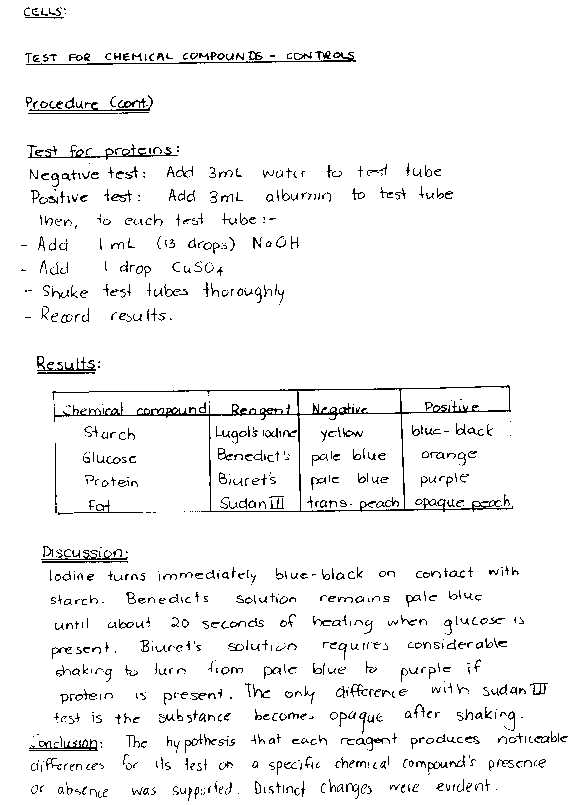 CELLS:
TEST FOR CHEMICAL COMPOUNDS - CONTROLS
Procedure (cont.)
Test for proteins:
Negative test: Add 3mL water to test tube
Positive test: Add 3mL albumin to test tube
then, to each test tube:-
- Add 1 mL (13 drops) NaOH
- Add 1 drop CuSO4
- Shake test tubes thoroughly
- Record results.
Results:
Chemical compound Reagent Negative Positive
Starch Lugol's iodine yellow blue-black
Glucose Benedict's pale blue orange
Protein Biuret's pale blue purple
Fat Sudan III trans. peach opaque peach
Discussion:
Iodine turns immediately blue-black on contact with
starch. Benedicts solution remains pale blue
until about 20 seconds of heating when glucose is
present. Biuret's solution requires considerable
shaking to turn from pale blue to purple if
protein is present. The only difference with sudan III
test is the substance becomes opaque after shaking.
Conclusion: The hypothesis that each reagent produces noticeable
differences for its test on a specific chemical compound's presence
or absence was supported. Distinct changes were evident.